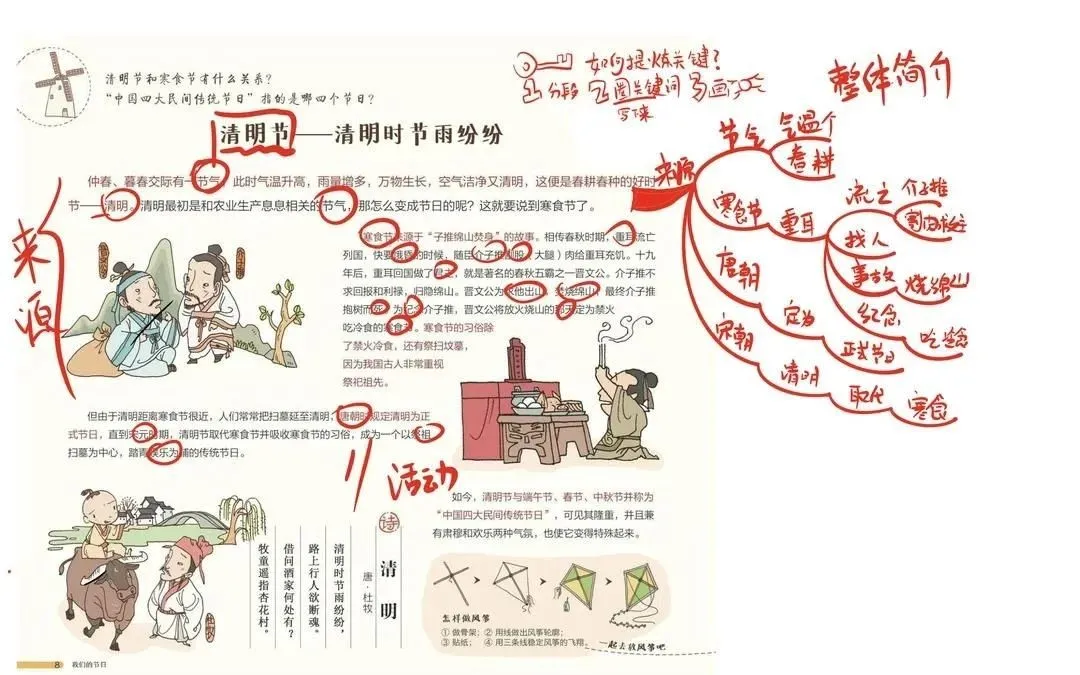 清明节和寒食节有什么关系?
“中国四大民间传统节日”指的是哪四个节日?
如何提炼关键?
①分段 ②圈关键词
写下来
整体简介
清明节——清明时节雨纷纷
仲春、暮春交际有一节气,此时气温升高,雨量增多,万物生长,空气洁净又清明,这便是春耕春种的好时
节——清明。清明最初是和农业生产息息相关的节气,那怎么变成节日的呢?这就要说到寒食节了。
来源
寒食节来源于“子推绵山焚身”的故事。相传春秋时期,重耳流亡
列国,快要饿昏的时候,随臣介子推割股(大腿)肉给重耳充饥。十九
年后,重耳回国做了君主,就是著名的春秋五霸之一晋文公。介子推不
求回报和利禄,归隐绵山。晋文公为求他出山,焚烧绵山,最终介子推
抱树而死。为纪念介子推,晋文公将放火烧山的那天定为禁火
吃冷食的寒食节。寒食节的习俗除
了禁火冷食,还有祭扫坟墓,
因为我国古人非常重视
祭祀祖先。
但由于清明距离寒食节很近,人们常常把扫墓延至清明,唐朝时规定清明为正
式节日,直到宋元时期,清明节取代寒食节并吸收寒食节的习俗,成为一个以祭祖
扫墓为中心,踏青娱乐为辅的传统节日。
活动
如今,清明节与端午节、春节、中秋节并称为
“中国四大民间传统节日”,可见其隆重,并且兼
有肃穆和欢乐两种气氛,也使它变得特殊起来。
诗
清明
唐·杜牧
清明时节雨纷纷,
路上行人欲断魂。
借问酒家何处有?
牧童遥指杏花村。
怎样做风筝
① 做骨架;② 用线做出风筝轮廓;
③ 贴纸; ④ 用三条线稳定风筝的飞翔。
一起去放风筝吧
8 我们的节日
来源
节气
气温个
春耕
寒食节
重耳
流亡
介子推
割肉
找人
事故
烧绵山
纪念
吃
唐朝
定为
正式节日
宋朝
清明
取代
寒食